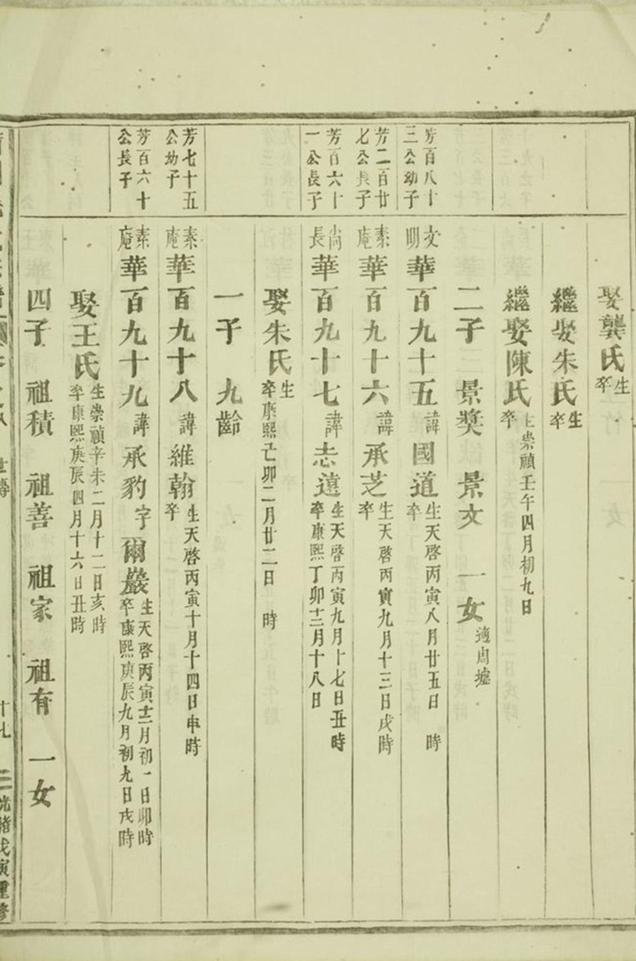 娶龔氏 生 卒
繼娶朱氏 生 卒
繼娶陳氏 生崇禎壬午四月初九日 卒
二子 景奬 景文 一女 適周墟
芳百八十三公幼子
文明 華百九十五 諱 國道 生天啓丙寅八月廿五日 時 卒
芳二百廿七公長子
素庵 華百九十六 諱 承芝 生天啓丙寅九月十三日戌時 卒
芳百六十一公長子
尚長 華百九十七 諱 志遠 生天啓丙寅九月十七日丑時 卒康熙丁卯十二月十八日
娶朱氏 生 卒康熙己卯二月廿二日 時
一子 九齡
芳七十五公幼子
素庵 華百九十八 諱 維翰 生天啓丙寅十月十四日申時 卒
芳百六十公長子
素庵 華百九十九 諱 承豹 字 爾巖 生天啓丙寅十二月初一日卯時 卒康熙庚辰九月初九日戌時
娶王氏 生崇禎辛未二月十二日亥時 卒康熙庚辰四月十六日丑時
四子 祖積 祖善 祖家 祖有 一女
世傳 十七 光緒戊寅重修